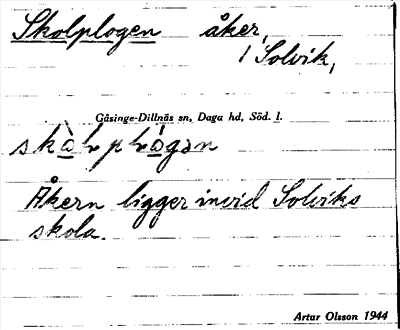 Skolplogen åker,
/ Solvik,
Gåsinge-Dillnäs sn, Daga hd, Söd. l.
Åkern ligger invid Solviks
skola.
Artur Olsson 1944